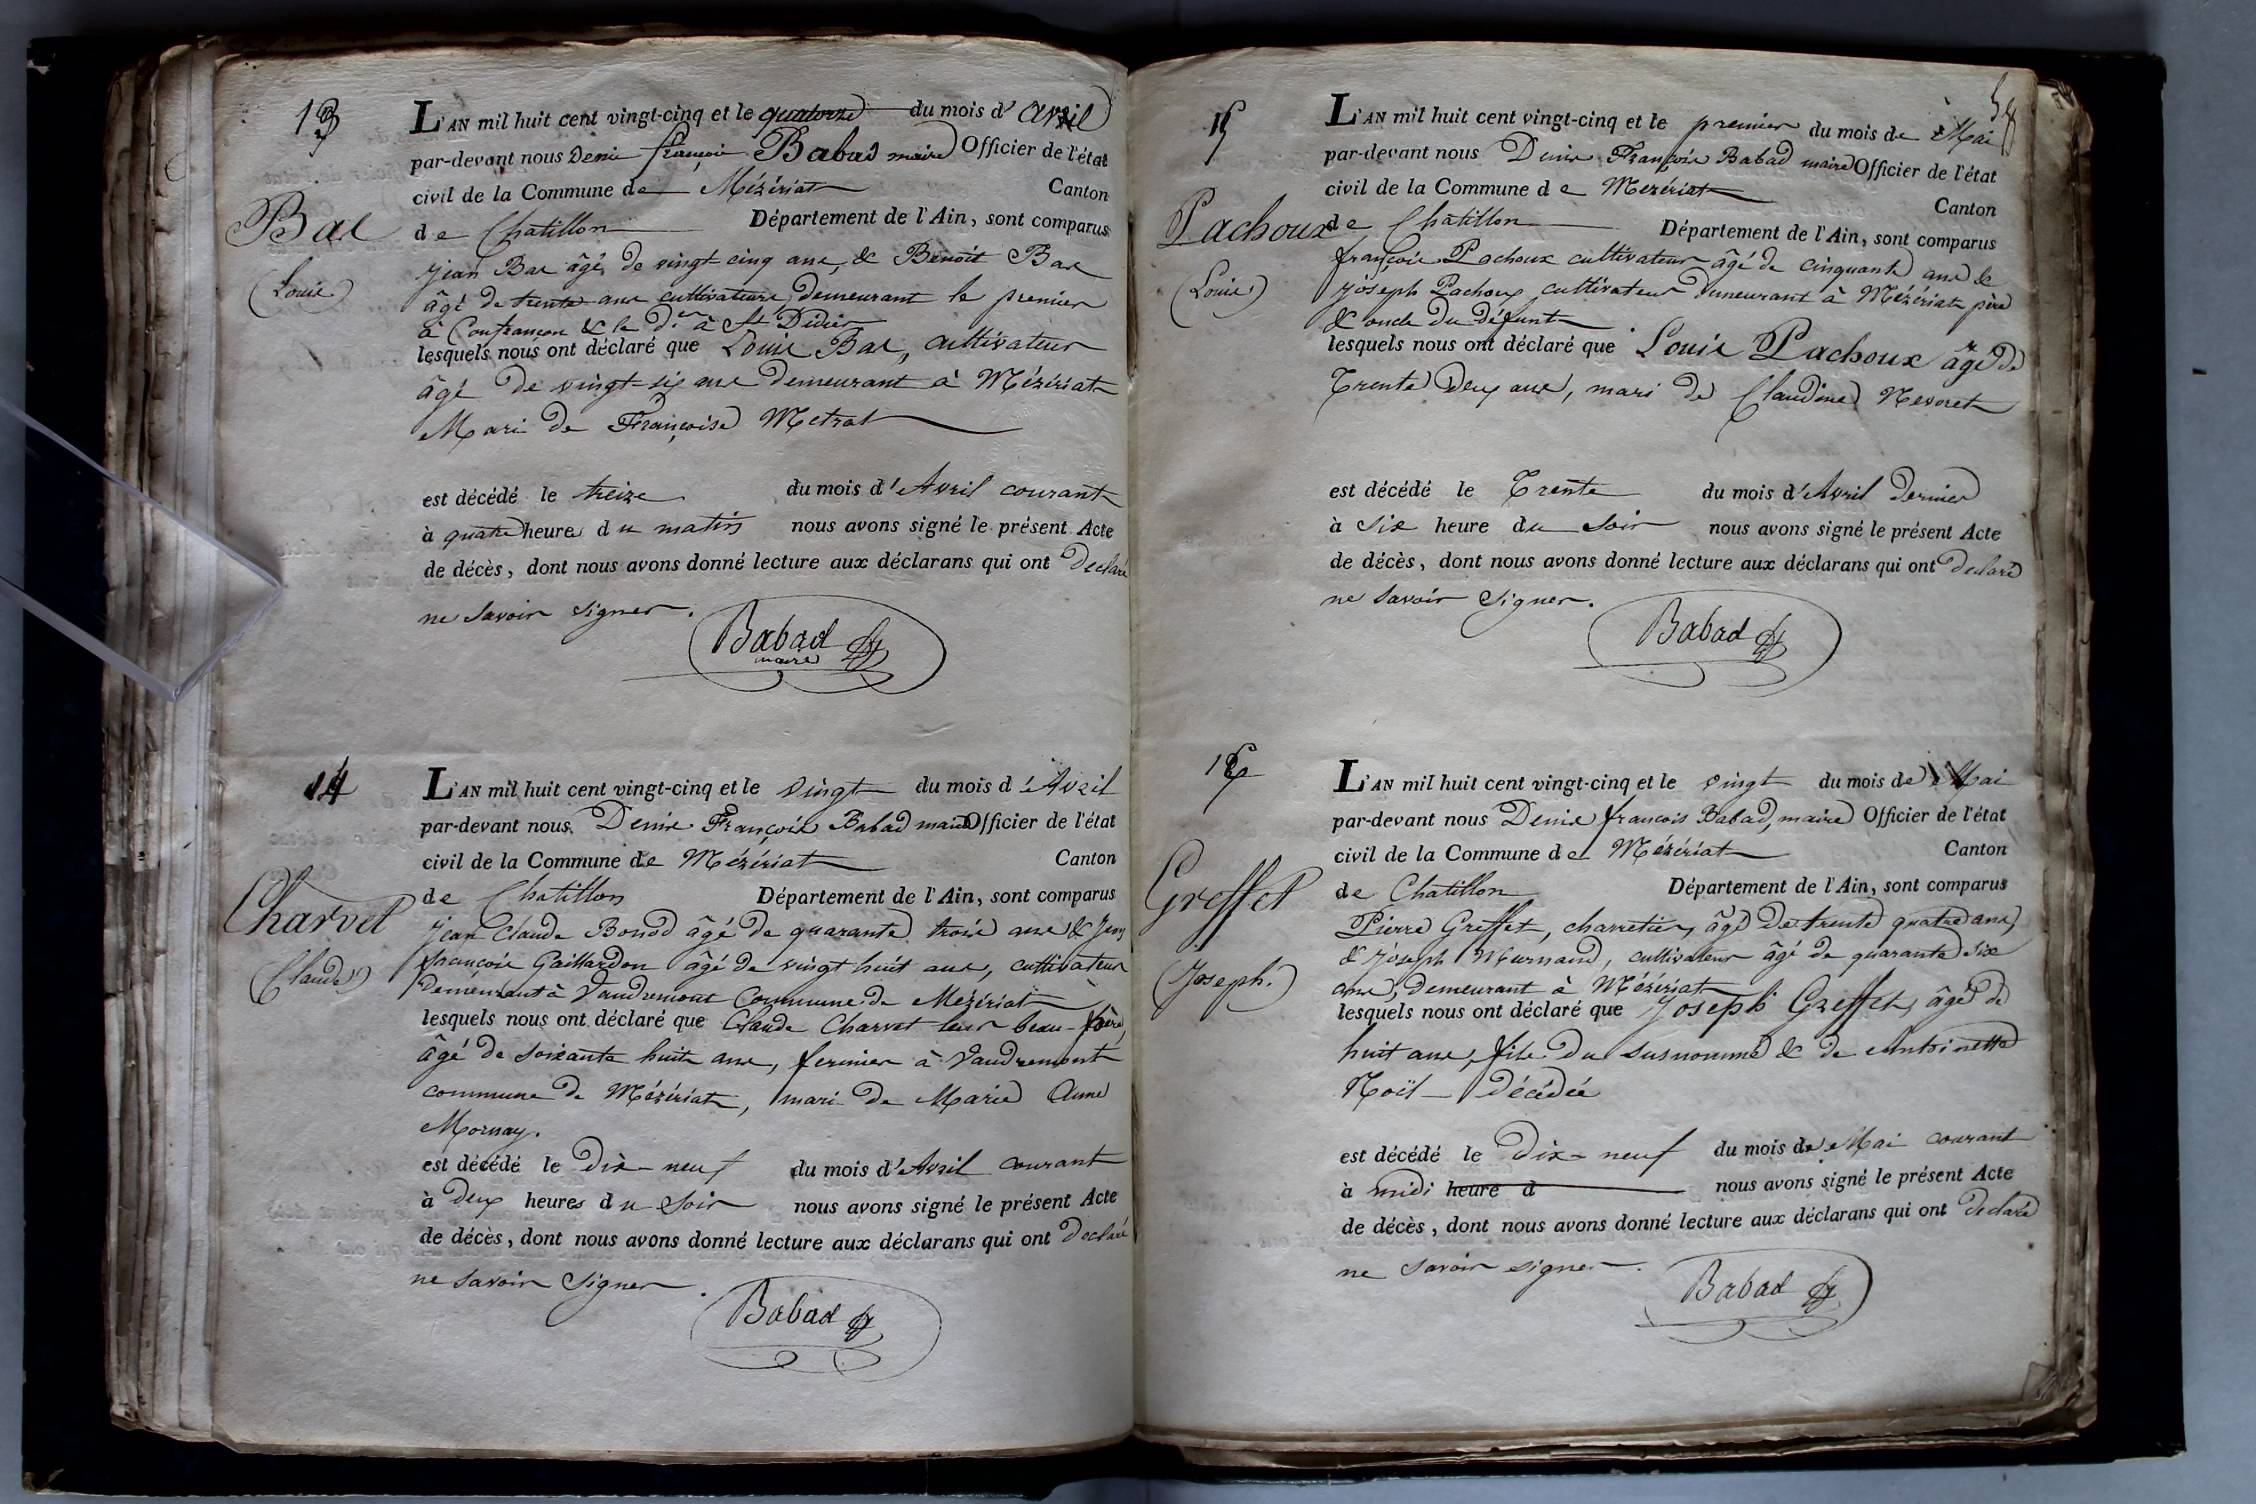 13
L'AN mil huit cent vingt-cinq et le quatorze du mois d'avril
par-devant nous Denis françois Babad maire Officier de l'état
civil de la Commune de Mézériat Canton
de Chatillon Département de l'Ain, sont comparus
Bas
(Louis)
jean Bas âgé de vingt cinq ans, & Benoît Bas
âgé de trente ans cultivateurs, demeurant le premier
à Confrançon & le d.er à St Didier
lesquels nous ont déclaré que Louis Bas, cultivateur
âgé de vingt-six ans demeurant à Mézériat
Mari de Françoise Metrat
est décédé le treize du mois d'Avril courant
à quatre heures du matin nous avons signé le présent Acte
de décès, dont nous avons donné lecture aux déclarans qui ont déclaré
ne savoir signer.
Babad
maire
14
L'AN mil huit cent vingt-cinq et le vingt du mois d'Avril
par-devant nous Denis François Babad maire Officier de l'état
civil de la Commune de Mézériat Canton
de Chatillon Département de l'Ain, sont comparus
Charvet
(Claude)
jean Claude Bonod âgé de quarante trois ans & jean
françois Gaillardon âgé de vingt huit ans, cultivateurs
demeurant à Vaudremont Commune de Mézériat
lesquels nous ont déclaré que Claude Charvet leur beau-père,
âgé de soixante huit ans, fermier à Vaudremont
commune de Mézériat, mari de Marie Anne
Mornay.
est décédé le dix-neuf du mois d'Avril courant
à deux heures du soir nous avons signé le présent Acte
de décès, dont nous avons donné lecture aux déclarans qui ont déclaré
ne savoir signer.
Babad
58
15
L'AN mil huit cent vingt-cinq et le premier du mois de Mai
par-devant nous Denis François Babad maire Officier de l'état
civil de la Commune de Mezériat Canton
de Chatillon Département de l'Ain, sont comparus
Pachoux
(Louis)
françois Pachoux cultivateur âgé de cinquante ans &
joseph Pachoux cultivateur demeurant à Mézériat père
& oncle du défunt
lesquels nous ont déclaré que Louis Pachoux âgé de
Trente deux ans, mari de Claudine Nevoret
est décédé le Trente du mois d'Avril dernier
à six heure du soir nous avons signé le présent Acte
de décès, dont nous avons donné lecture aux déclarans qui ont déclaré
ne savoir signer.
Babad
16
L'AN mil huit cent vingt-cinq et le vingt du mois de Mai
par-devant nous Denis françois Babad, maire Officier de l'état
civil de la Commune de Mézériat Canton
de Chatillon Département de l'Ain, sont comparus
Greffet
(joseph.)
Pierre Greffet, charretier, âgé de trente quatre ans,
& joseph cultivateur âgé de quarante six
ans, demeurant à Mézériat
lesquels nous ont déclaré que Joseph Greffet, âgé de
huit ans, fils du susnommé & de Antoinette
Noël décédée
est décédé le dix-neuf du mois de Mai courant
à midi heure d nous avons signé le présent Acte
de décès, dont nous avons donné lecture aux déclarans qui ont déclaré
ne savoir signer.
Babad